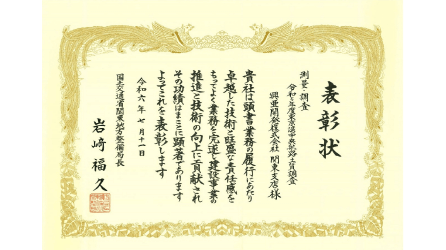 表彰状
測量・調査
興亜開発株式会社 関東支店様
貴社は頭書業務の履行にあたり
卓越した技術と旺盛な責任感を
もってよく業務を完遂し建設事業の
推進と技術の向上に貢献され
その功績はまことに顕著であります
よってこれを表彰します
令和六年七月十一日
国土交通省関東地方整備局長
岩﨑福久